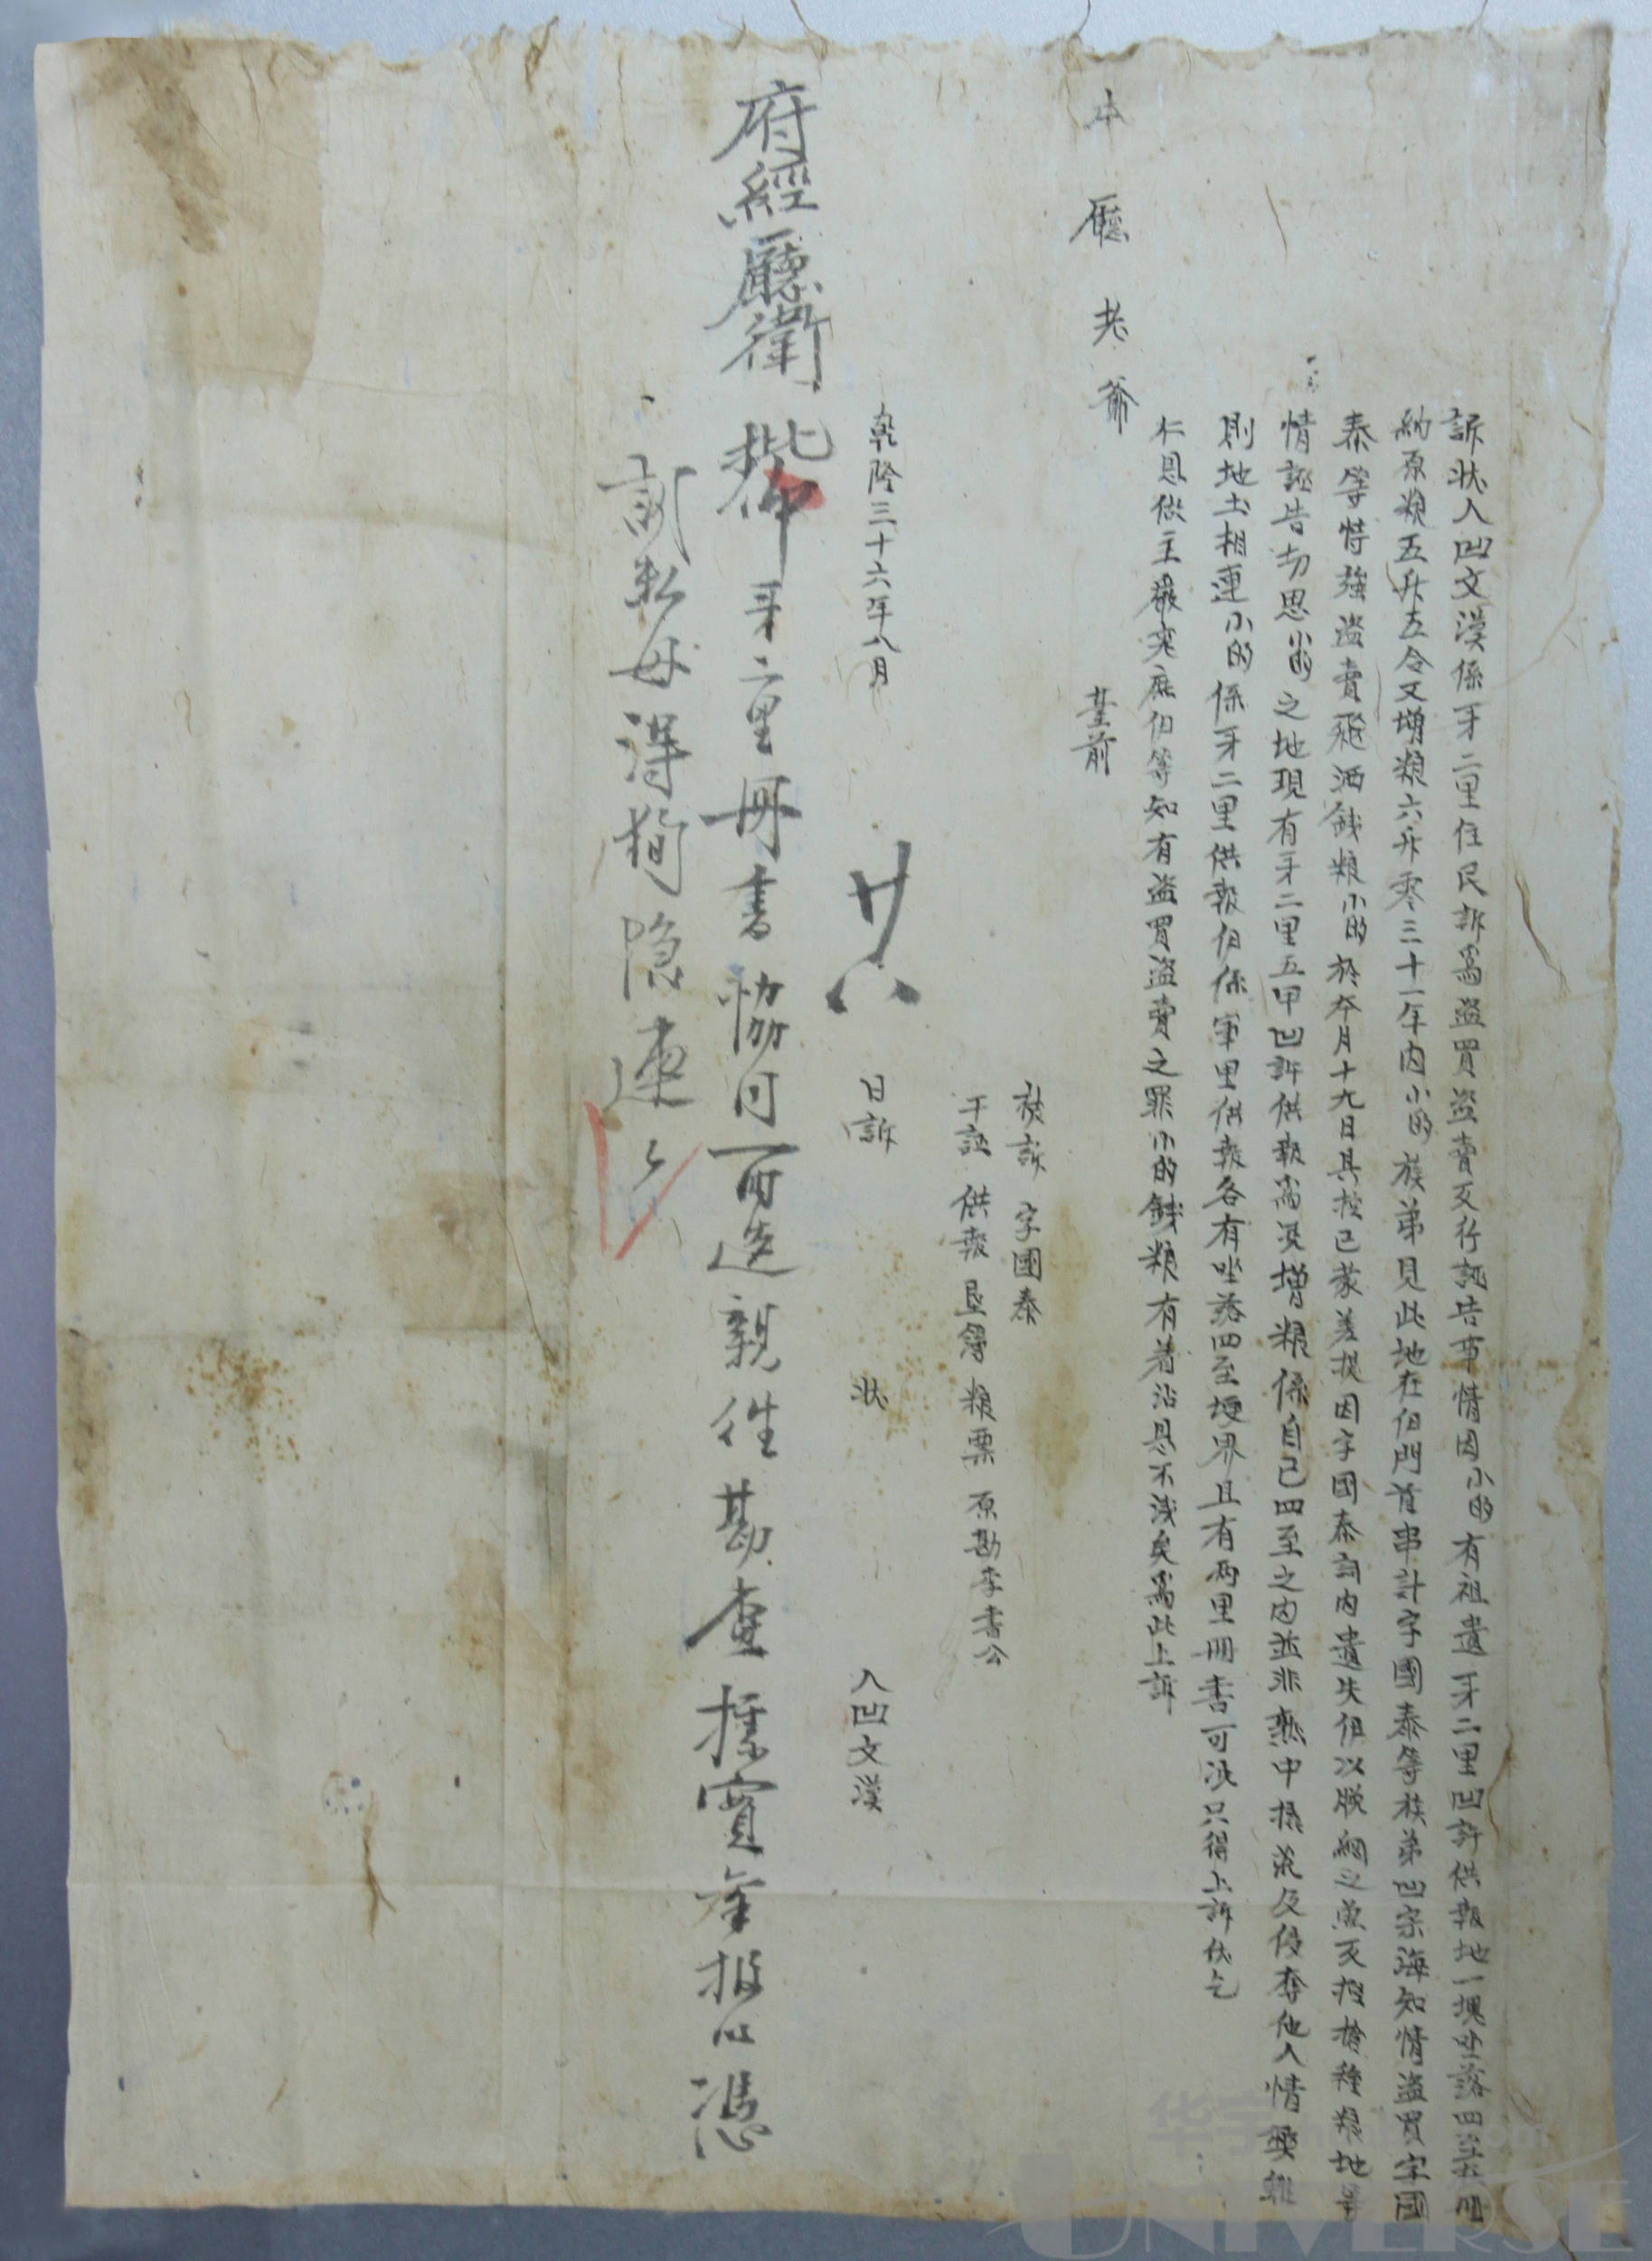 訴狀人凹文漢係牙二里住民訴爲盜買盜賣反行誣告事情因小的有祖遺牙二里凹許供報地一塊坐落四至在冊
納原粮五升五合又增粮六升零三十一年内小的族弟見此地在伊門首串計字國泰等族弟凹宗海知情盜買字國
泰等恃強盜賣飛洒錢粮小的於本月十九日具控已蒙差提因字國泰詞内遺失伊以脫綱之魚反捏搶種粮地等
情誣告切思小的之地現有牙二里五甲凹許供報爲憑增粮係自己四至之内並非熟中摭荒及侵奪他人情弊雖
則地土相連小的係牙二里供報伊係軍里供報各有坐落四至埂界且有两里冊書可決只得上訴伏乞
仁恩做主嚴究庶伯等知有盜買盜賣之罪小的錢粮有着沾恩不淺矣爲此上訴
本廳老爺 臺前
被訴 字國泰
干証 供報 垦簿 粮票 原勘李書公
乾隆三十六年八月 廿八 日訴 狀 人凹文漢
府經廳衛 批仰牙二里冊書協同两造親往勘查據實禀报以憑
訊奪毋得狥隐速速